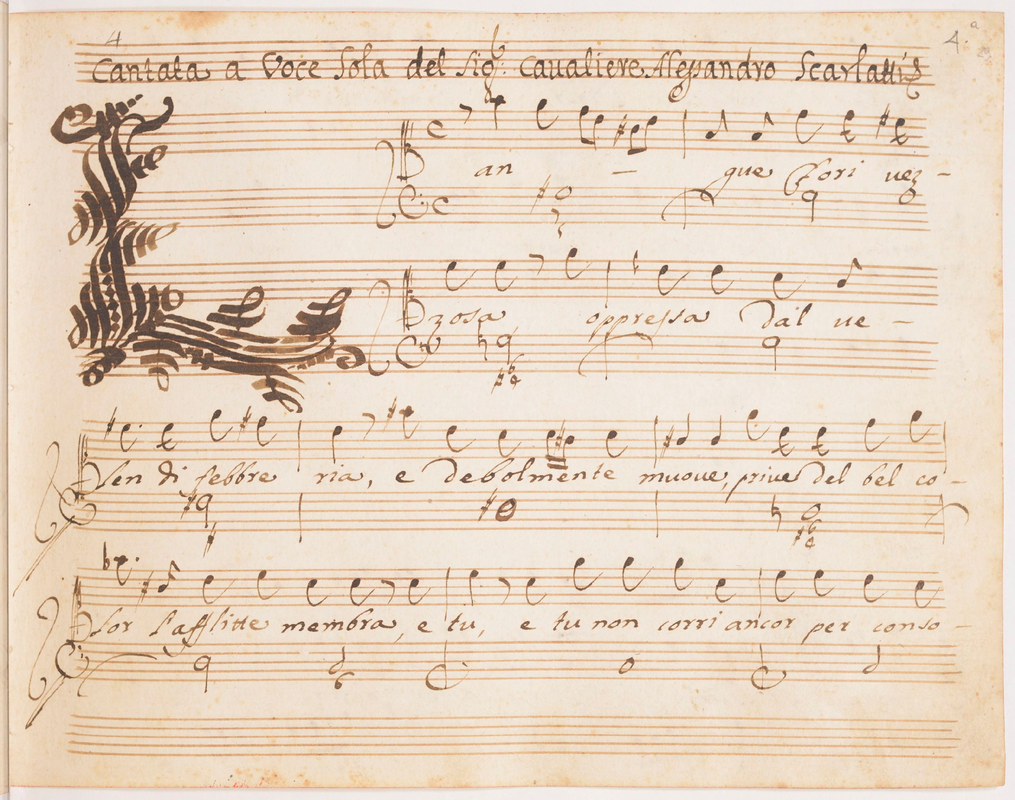 4
4.a
Cantata a Voce Sola del Sig.r Caualiere Alessandro Scarlatti
L an - gue Clori uez -
zosa oppressa dal ue -
len di febbre ria, e debolmente muoue, priue del bel co -
lor l'afflitte membra, e tu, e tu non corri ancor per conso -